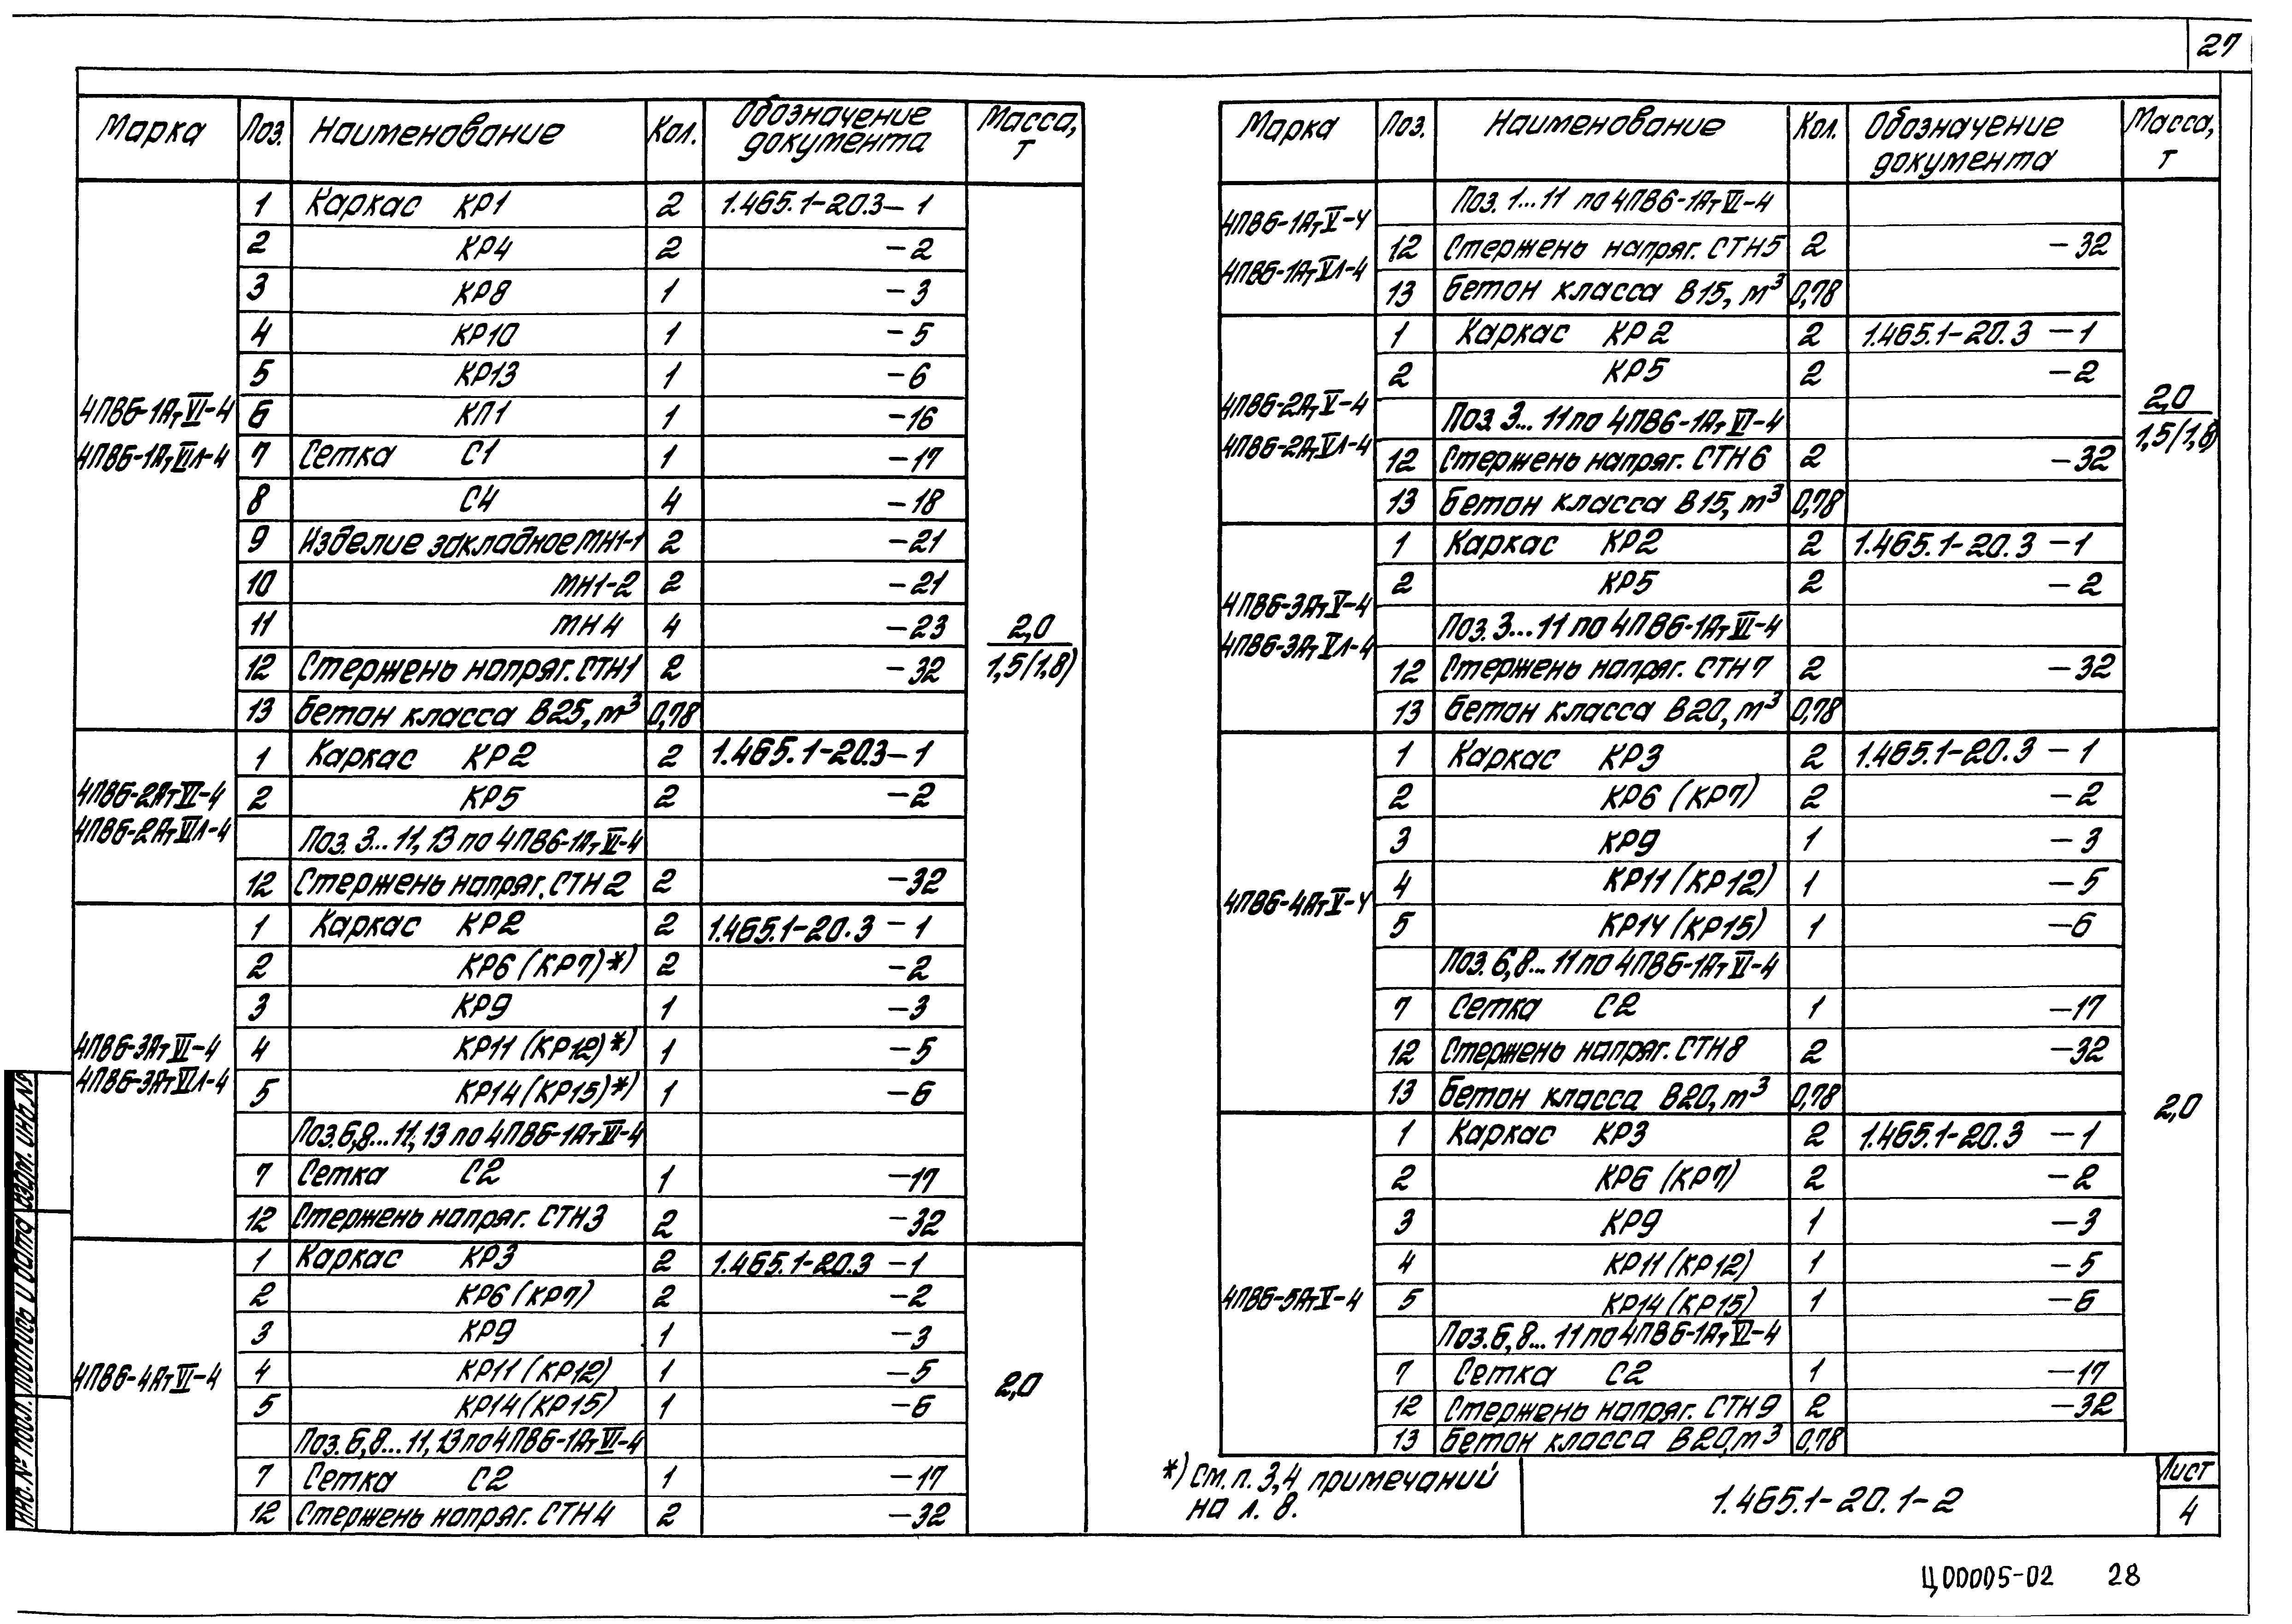 27
Марка Поз. Наименование Кол. Обозначение документа Масса, т
4ПВ6-1АтVI-4
4ПВ6-1АтVIл-4
1 Каркас КР1 2 1.465.1-20.3-1
2 КР4 2 -2
3 КР8 1 -3
4 КР10 1 -5
5 КР13 1 -6
6 КП1 1 -16
7 Сетка С1 1 -17
8 С4 4 -18
9 Изделие закладное МН1-1 2 -21
10 МН1-2 2 -21
11 МН4 4 -23
12 Стержень напряг. СТН1 2 -32
13 Бетон класса В25, м³ 0,78
2,0
1,5(1,8)
4ПВ6-2АтVI-4
4ПВ6-2АтVIл-4
1 Каркас КР2 2 1.465.1-20.3-1
2 КР5 2 -2
Поз. 3...11, 13 по 4ПВ6-1АтVI-4
12 Стержень напряг. СТН2 2 -32
4ПВ6-3АтVI-4
4ПВ6-3АтVIл-4
1 Каркас КР2 2 1.465.1-20.3-1
2 КР6 (КР7)*) 2 -2
3 КР9 1 -3
4 КР11 (КР12)*) 1 -5
5 КР14 (КР15)*) 1 -6
Поз. 6,8...11, 13 по 4ПВ6-1АтVI-4
7 Сетка С2 1 -17
12 Стержень напряг. СТН3 2 -32
4ПВ6-4АтVI-4
1 Каркас КР3 2 1.465.1-20.3-1
2 КР6 (КР7) 2 -2
3 КР9 1 -3
4 КР11 (КР12) 1 -5
5 КР14 (КР15) 1 -6
Поз. 6,8...11, 13 по 4ПВ6-1АтVI-4
7 Сетка С2 1 -17
12 Стержень напряг. СТН4 2 -32
2,0
Марка Поз. Наименование Кол. Обозначение документа Масса, т
4ПВ6-1АтV-4
4ПВ6-1АтVл-4
Поз. 1...11 по 4ПВ6-1АтVI-4
12 Стержень напряг. СТН5 2 -32
13 Бетон класса В15, м³ 0,78
4ПВ6-2АтV-4
4ПВ6-2АтVл-4
1 Каркас КР2 2 1.465.1-20.3-1
2 КР5 2 -2
Поз. 3...11 по 4ПВ6-1АтVI-4
12 Стержень напряг. СТН6 2 -32
13 Бетон класса В15, м³ 0,78
2,0
1,5(1,8)
4ПВ6-3АтV-4
4ПВ6-3АтVл-4
1 Каркас КР2 2 1.465.1-20.3-1
2 КР5 2 -2
Поз. 3...11 по 4ПВ6-1АтVI-4
12 Стержень напряг. СТН7 2 -32
13 Бетон класса В20, м³ 0,78
4ПВ6-4АтV-4
1 Каркас КР3 2 1.465.1-20.3-1
2 КР6 (КР7) 2 -2
3 КР9 1 -3
4 КР11 (КР12) 1 -5
5 КР14 (КР15) 1 -6
Поз. 6,8...11 по 4ПВ6-1АтVI-4
7 Сетка С2 1 -17
12 Стержень напряг. СТН8 2 -32
13 Бетон класса В20, м³ 0,78
4ПВ6-5АтV-4
1 Каркас КР3 2 1.465.1-20.3-1
2 КР6 (КР7) 2 -2
3 КР9 1 -3
4 КР11 (КР12) 1 -5
5 КР14 (КР15) 1 -6
Поз. 6,8...11 по 4ПВ6-1АтVI-4
7 Сетка С2 1 -17
12 Стержень напряг. СТН9 2 -32
13 Бетон класса В20, м³ 0,78
2,0
*) См. п. 3,4 примечаний
на л. 8.
1.465.1-20.1-2
Лист
4
Инв. № подл. Подпись и дата Взам. инв. №
Ц00005-02 28